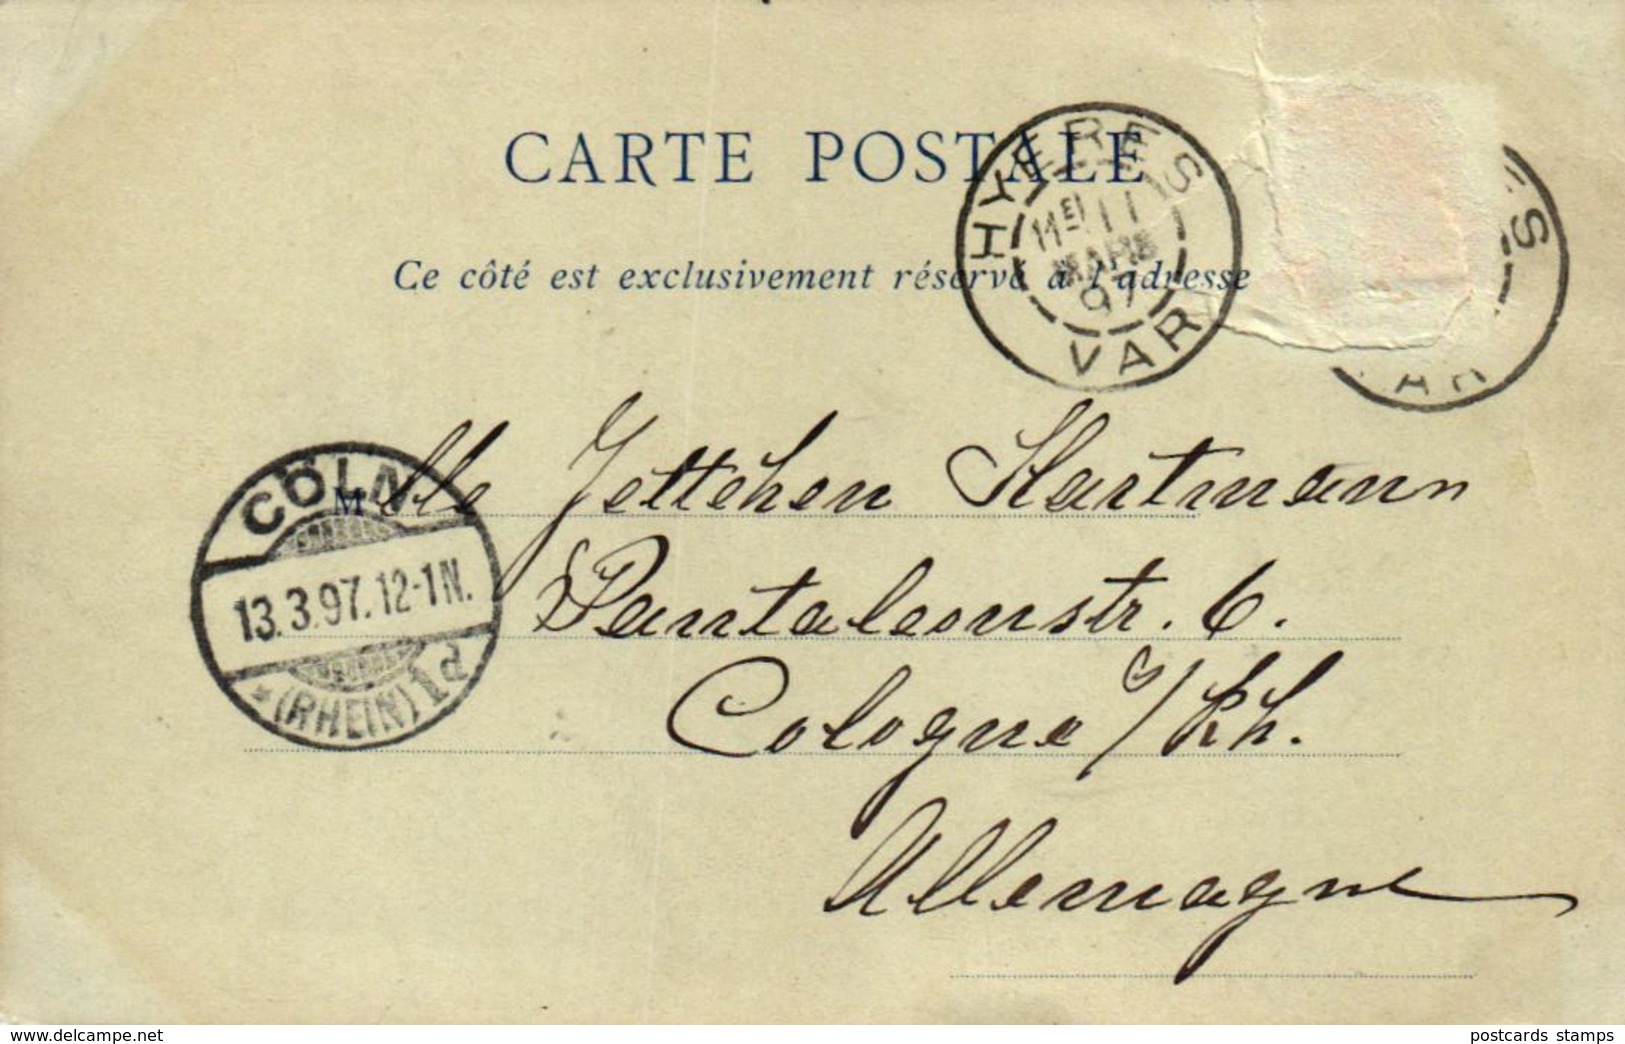 CARTE POSTALE
Ce côté est exclusivement réservé à l'adresse
HYERES
11
MARS
97
VAR
ES
AR
Mlle Jettchen Hartmann
Pantaleonstr. 6.
Cologne a/Rh.
Allemagne
CÖLN
13.3.97.12-1N.
* (RHEIN) 1d
www.delcampe.net
postcards_stamps